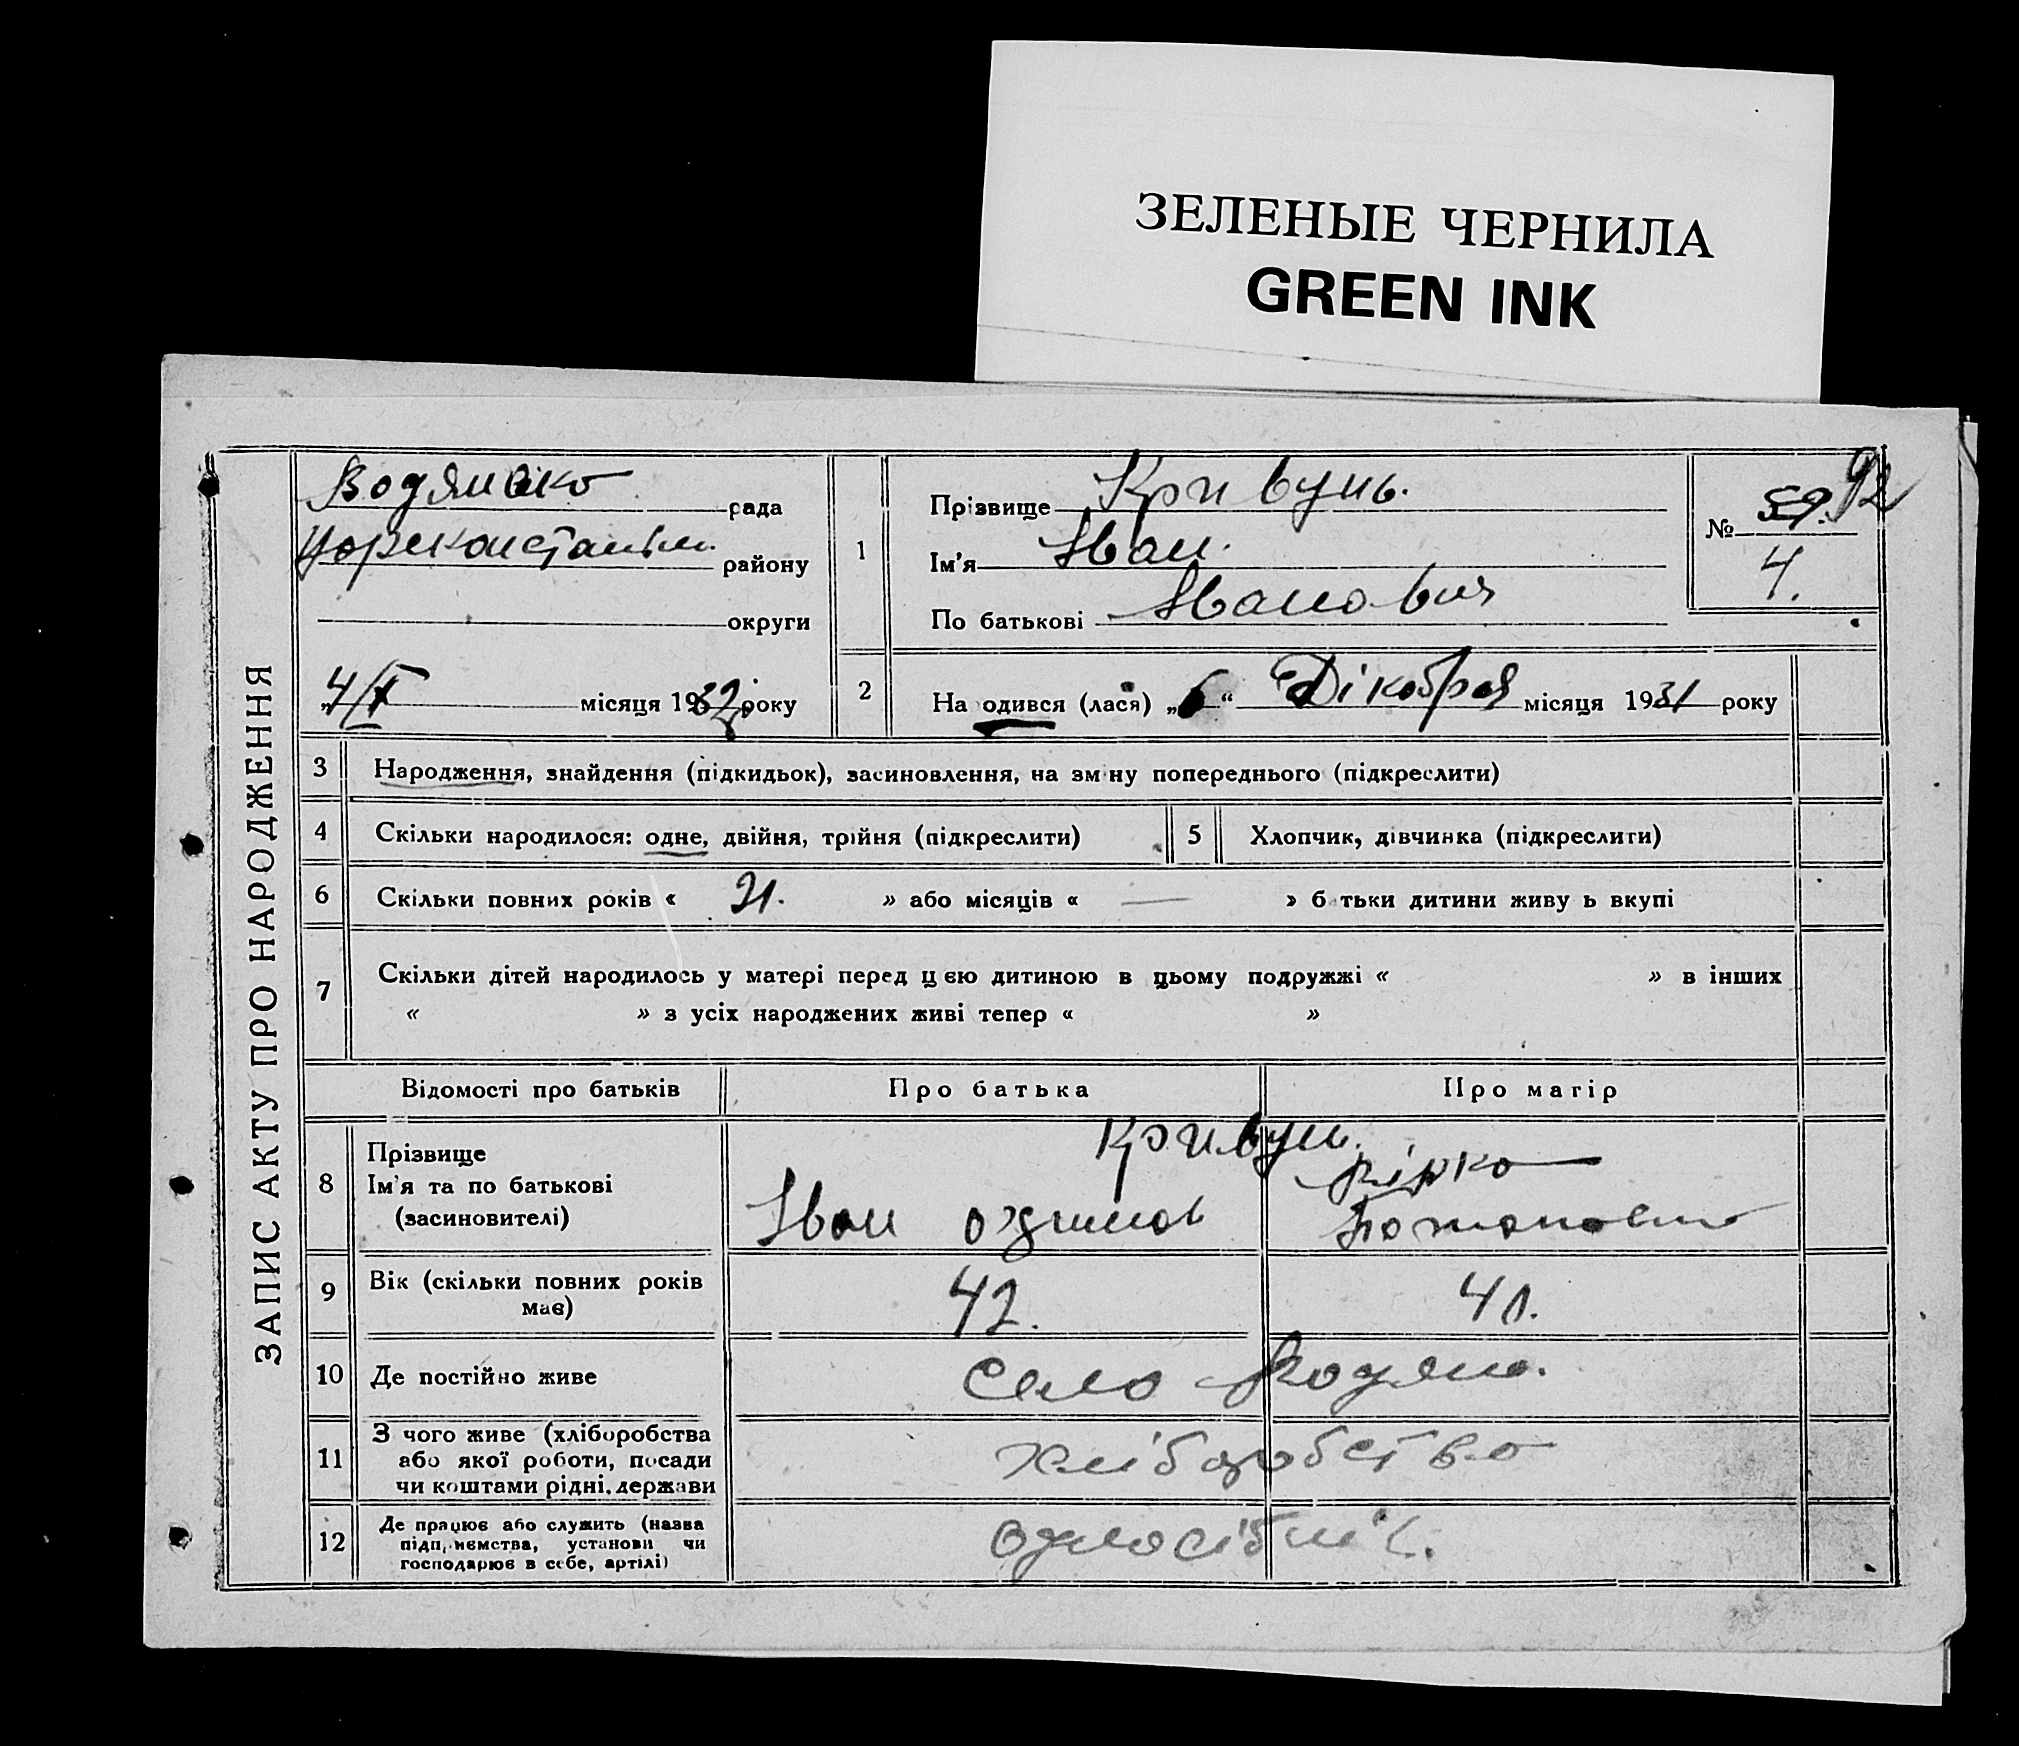 ЗЕЛЕНЫЕ ЧЕРНИЛА
GREEN INK
ЗАПИС АКТУ ПРО НАРОДЖЕННЯ
рада
району
округи
4/I місяця 1932 року
1
Прізвище Кривунь.
Ім'я Іван.
По батькові Іванович
№ 59. 92
4.
2
На одився (лася) „6“ Дікабря місяця 1931 року
3 Народження, знайдення (підкидьок), засиновлення, на зм ну попереднього (підкреслити)
4 Скільки народилося: одне, двійня, трійня (підкреслити)
5 Хлопчик, дівчинка (підкреслити)
6 Скільки повних років « 21. » або місяців « — » б тьки дитини живу ь вкупі
7 Скільки дітей народилось у матері перед ц єю дитиною в цьому подружжі « » в інших
« » з усіх народжених живі тепер « »
Відомості про батьків
Про батька
Про матір
8
Прізвище
Ім'я та по батькові
(засиновителі)
Кривунь.
Іван
9
Вік (скільки повних років
має)
42.
41.
10 Де постійно живе
село Водяно.
11
З чого живе (хліборобства
або якої роботи, посади
чи коштами рідні, держави
хліборобство
12
Де працює або служить (назва
підпр.иємства, установи чи
господарює в себе, артілі)